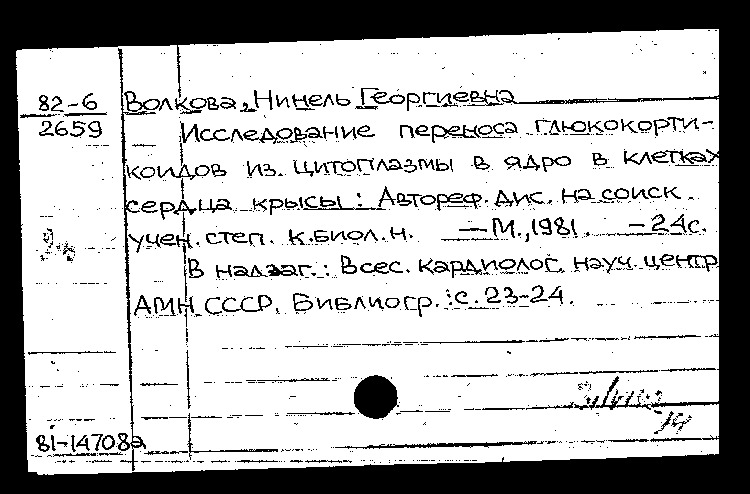 82-6
2659
Волкова, Нинель Георгиевна
Исследование переноса глюкокорти-
коидов из цитоплазмы в ядро в клетках
сердца крысы: Автореф. дис. на соиск.
учен. степ. к.биол.н. —М., 1981. —24с.
В надзаг.: Всес. кардиолог. науч. центр
АМН СССР. Библиогр.: с. 23-24.
81-14708а